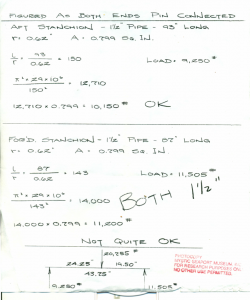 FIGURED AS BOTH ENDS PIN CONNECTED
AFT STANCHION - 1½" PIPE - 93" LONG
r = 0.62" A = 0.799 SQ. IN.
L/r = 93/0.62 = 150 LOAD = 9,250#
π² × 29 × 10⁶ / 150² = 12,710
12,710 × 0.799 = 10,150# OK
FOR'D. STANCHION - 1½" PIPE - 87" LONG
r = 0.62" A = 0.799 SQ. IN.
L/r = 87/0.62 = 143 LOAD = 11,505#
π² × 29 × 10⁶ / 143² = 14,000
BOTH 1½"
14,000 × 0.799 = 11,200#
NOT QUITE OK
20,755#
24.25" 19.50"
43.75"
9,250# 11,505#
MYSTIC SEAPORT MUSEUM
FOR RESEARCH PURPOSES ONLY
NO OTHER USE PERMITTED